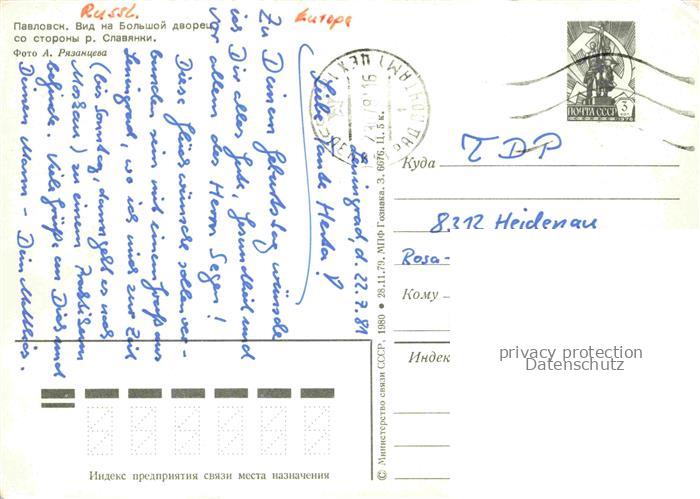 Russl.
Europa
Павловск. Вид на Большой дворец
со стороны р. Славянки.
Фото А. Рязанцева
Leningrad, d. 22.7.81
Liebe Tante Herta!
Zu Deinem Geburtstag wünsche
ich Dir alles Gute, Gesundheit und
vor allem des Herrn Segen!
Diese Glückwünsche sollen ver-
bunden sein mit einem Gruß aus
Leningrad, wo ich mich zur Zeit
(bis Sonntag, dann geht es nach
Moskau) zu einem Praktikum
befinde. Viele Grüße an Dich und
Deinen Mann - Dein Matthias.
ПОЧТА СССР
3
коп
Куда
TDP
8312 Heidenau
Rosa-
Кому
Индекс
privacy protection
Datenschutz
© Министерство связи СССР, 1980 • 28.11.79. МПФ Гознака. З. 6676. Ц. 5 к.
Индекс предприятия связи места назначения